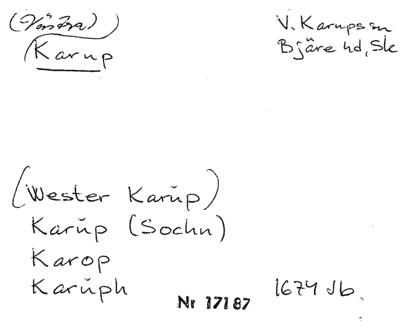 (Västra) V. Karups sn
Karup Bjäre hd, Sk
(Wester Karŭp)
Karŭp (Sochn)
Karop
Karŭph Nr 17187 1674 Jb.